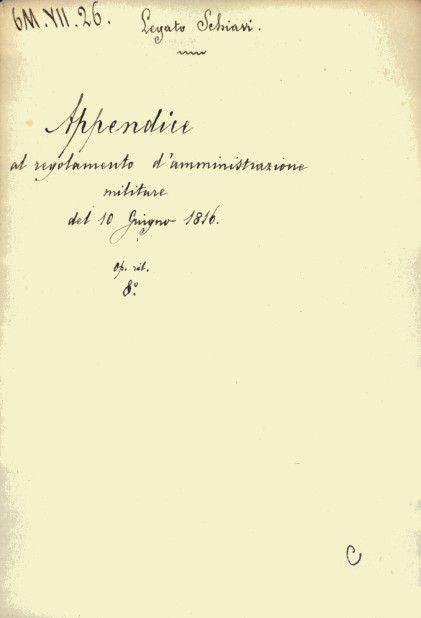 6M.VII.26. Legato Schiavi.
Appendice
al regolamento d'amministrazione
militare
del 10 Giugno 1816.
Op. ril.
8°.
C